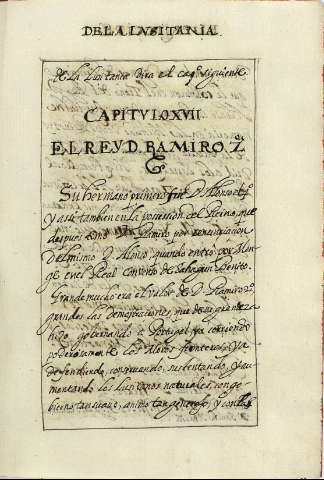 DE LA LUSITANIA
de la Lusitania dira el cap.º siguiente
CAPITULO XVII
EL REY D. RAMIRO. 2.
Su hermano primero fue D. Alonso el 4º
y assi tambien en la possession del Reino, que
despues tomó Ramiro por renunciacion
del mismo D. Alonso, quando entró por Mon-
ge en el Real Convento de Sahagun Benito.
Grande mucho era el valor de D. Ramiro 2º
grandes las demostraciones, que de su grandeza
hizo governando a Portugal ya corriendo
poderosamente los Moros fronteros, ya
defendiendo, conservando, sustentando, y au-
mentando los Lusitanos naturales, con go-
bierno tan suave, animo tan generoso, y con tal